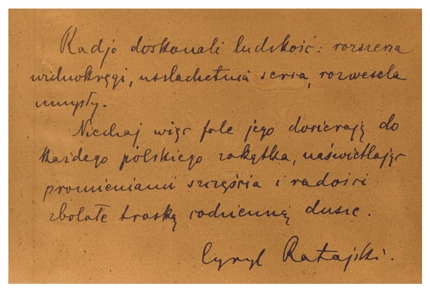 Radjo doskonali ludzkość: rozszerza
widnokręgi, uszlachetnia serca, rozwesela
umysły.
Niechaj więc fale jego docierają do
każdego polskiego zakątka, naświetlając
promieniami szczęścia i radości
zbolałe troską codzienną dusze.
Cyryl Ratajski.